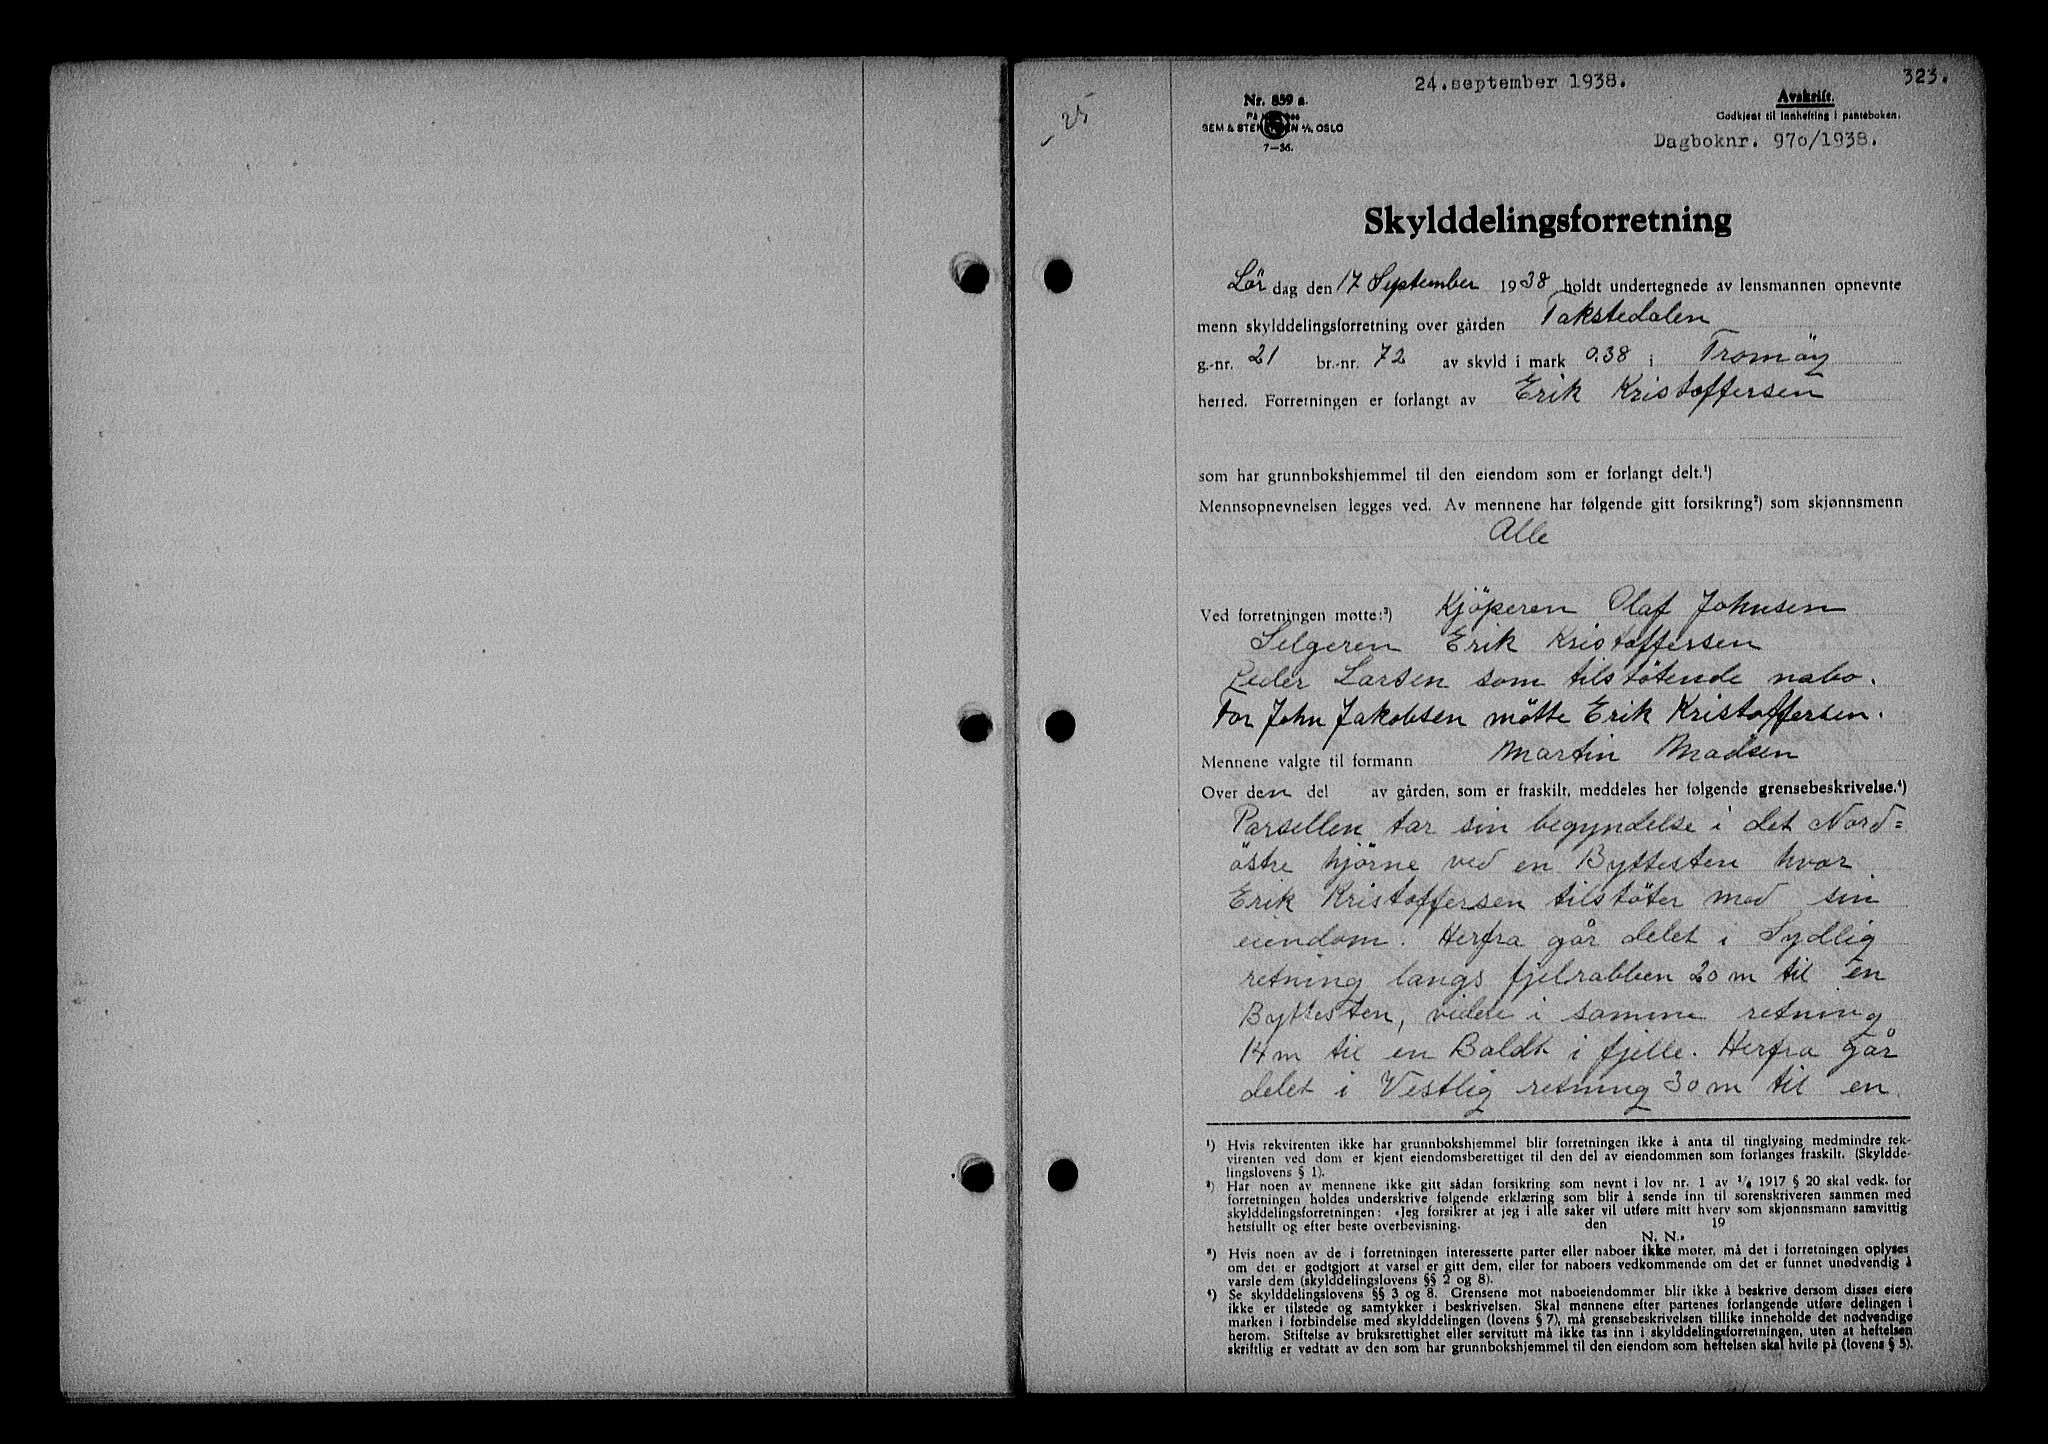 24.september 1938.
323.
- 25
Nr. 859 a.
SEM & STEN N A/S, OSLO
7—36.
Avskrift.
Godkjent til innhefting i panteboken.
Dagboknr. 970/1938.
Skylddelingsforretning
Lör dag den 17 September 1938 holdt undertegnede av lensmannen opnevnte
menn skylddelingsforretning over gården Takstedalen
g.-nr. 21 br.-nr. 72 av skyld i mark 0.38 i Tromöy
herred. Forretningen er forlangt av Erik Kristoffersen
som har grunnbokshjemmel til den eiendom som er forlangt delt.¹)
Mennsopnevnelsen legges ved. Av mennene har følgende gitt forsikring²) som skjønnsmenn
Alle
Ved forretningen møtte:³) Kjöperen Olaf Johnsen
Selgeren Erik Kristoffersen
Peder Larsen som tilstötende nabo.
For John Jakobsen mötte Erik Kristoffersen.
Mennene valgte til formann Martin Madsen
Over den del av gården, som er fraskilt, meddeles her følgende grensebeskrivelse.⁴)
Parsellen tar sin begyndelse i det Nord=
östre hjörne ved en Byttesten hvor
Erik Kristoffersen tilstöter med sin
eiendom. Herfra går delet i Sydlig
retning langs fjelrabben 20 m til en
Byttesten, videre i samme retning
14 m til en Boldt i fjelle. Herfra går
delet i Vestlig retning 30 m til en
¹) Hvis rekvirenten ikke har grunnbokshjemmel blir forretningen ikke å anta til tinglysing medmindre rek-
virenten ved dom er kjent eiendomsberettiget til den del av eiendommen som forlanges fraskilt. (Skyldde-
lingslovens § 1).
²) Har noen av mennene ikke gitt sådan forsikring som nevnt i lov nr. 1 av 1/6 1917 § 20 skal vedk. før
forretningen holdes underskrive følgende erklæring som blir å sende inn til sorenskriveren sammen med
skylddelingsforretningen: «Jeg forsikrer at jeg i alle saker vil utføre mitt hverv som skjønnsmann samvittig
hetsfullt og efter beste overbevisning. den 19
N. N.»
³) Hvis noen av de i forretningen interesserte parter eller naboer ikke møter, må det i forretningen oplyses
om det er godtgjort at varsel er gitt dem, eller for naboers vedkommende om det er funnet unødvendig å
varsle dem (skylddelingslovens §§ 2 og 8).
⁴) Se skylddelingslovens §§ 3 og 8. Grensene mot naboeiendommer blir ikke å beskrive dersom disses eiere
ikke er tilstede og samtykker i beskrivelsen. Skal mennene efter partenes forlangende utføre delingen i
marken i forbindelse med skylddelingen (lovens § 7), må grensebeskrivelsen tillike inneholde det nødvendige
herom. Stiftelse av bruksrettighet eller servitutt må ikke tas inn i skylddelingsforretningen, uten at heftelsen
skriftlig er vedtatt av den som har grunnbokshjemmel til den eiendom som heftelsen skal hvile på (lovens § 5).